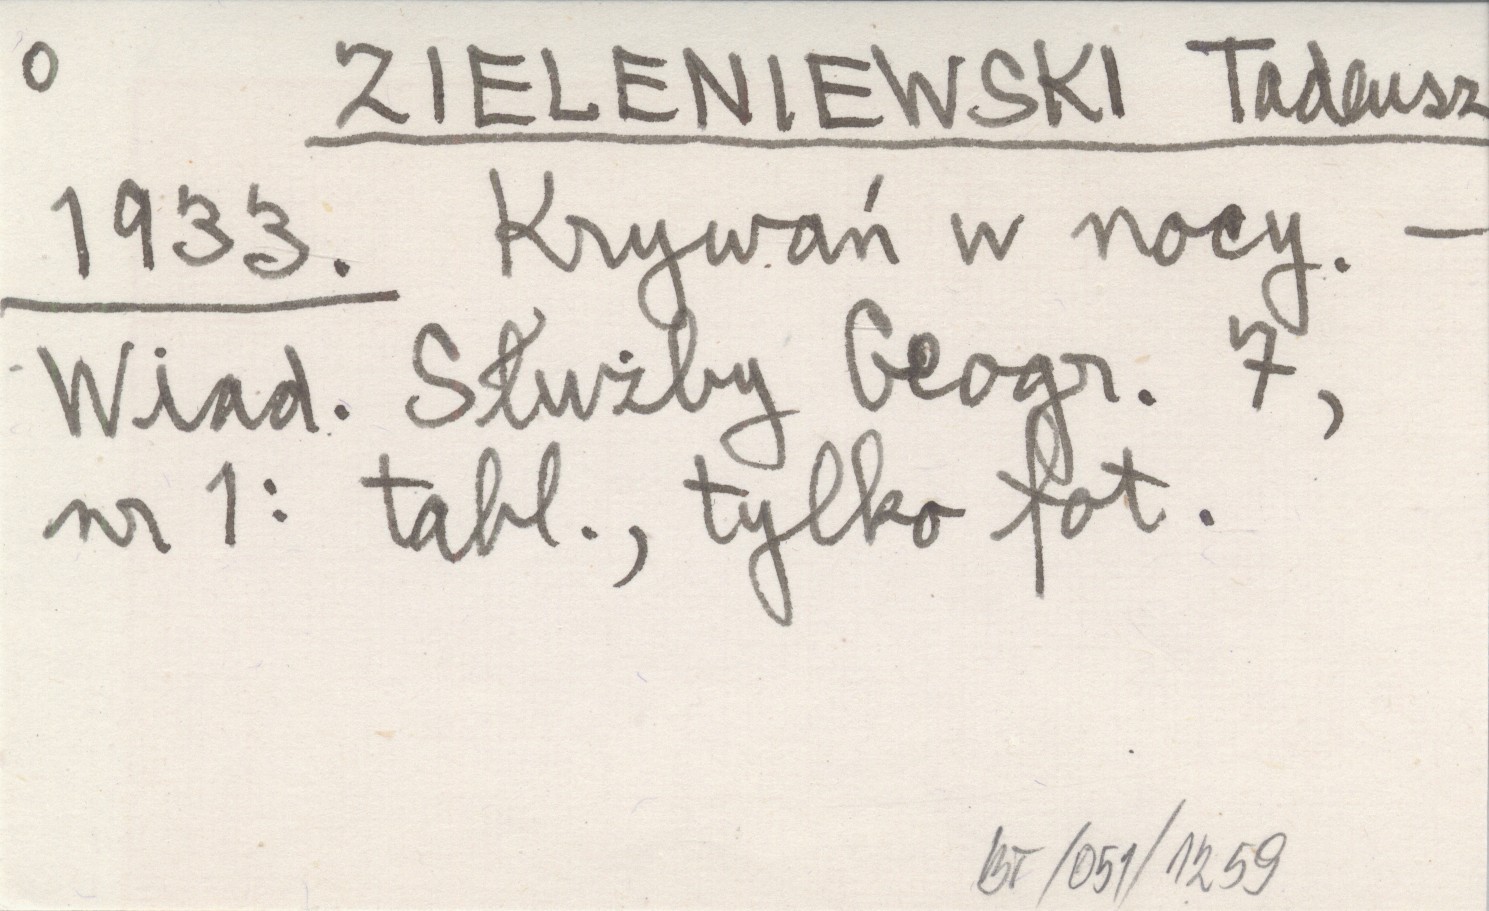 o ZIELENIEWSKI Tadeusz
1933. Krywań w nocy. —
Wiad. Służby Geogr. 7,
nr 1: tabl., tylko fot.
BT/051/1259